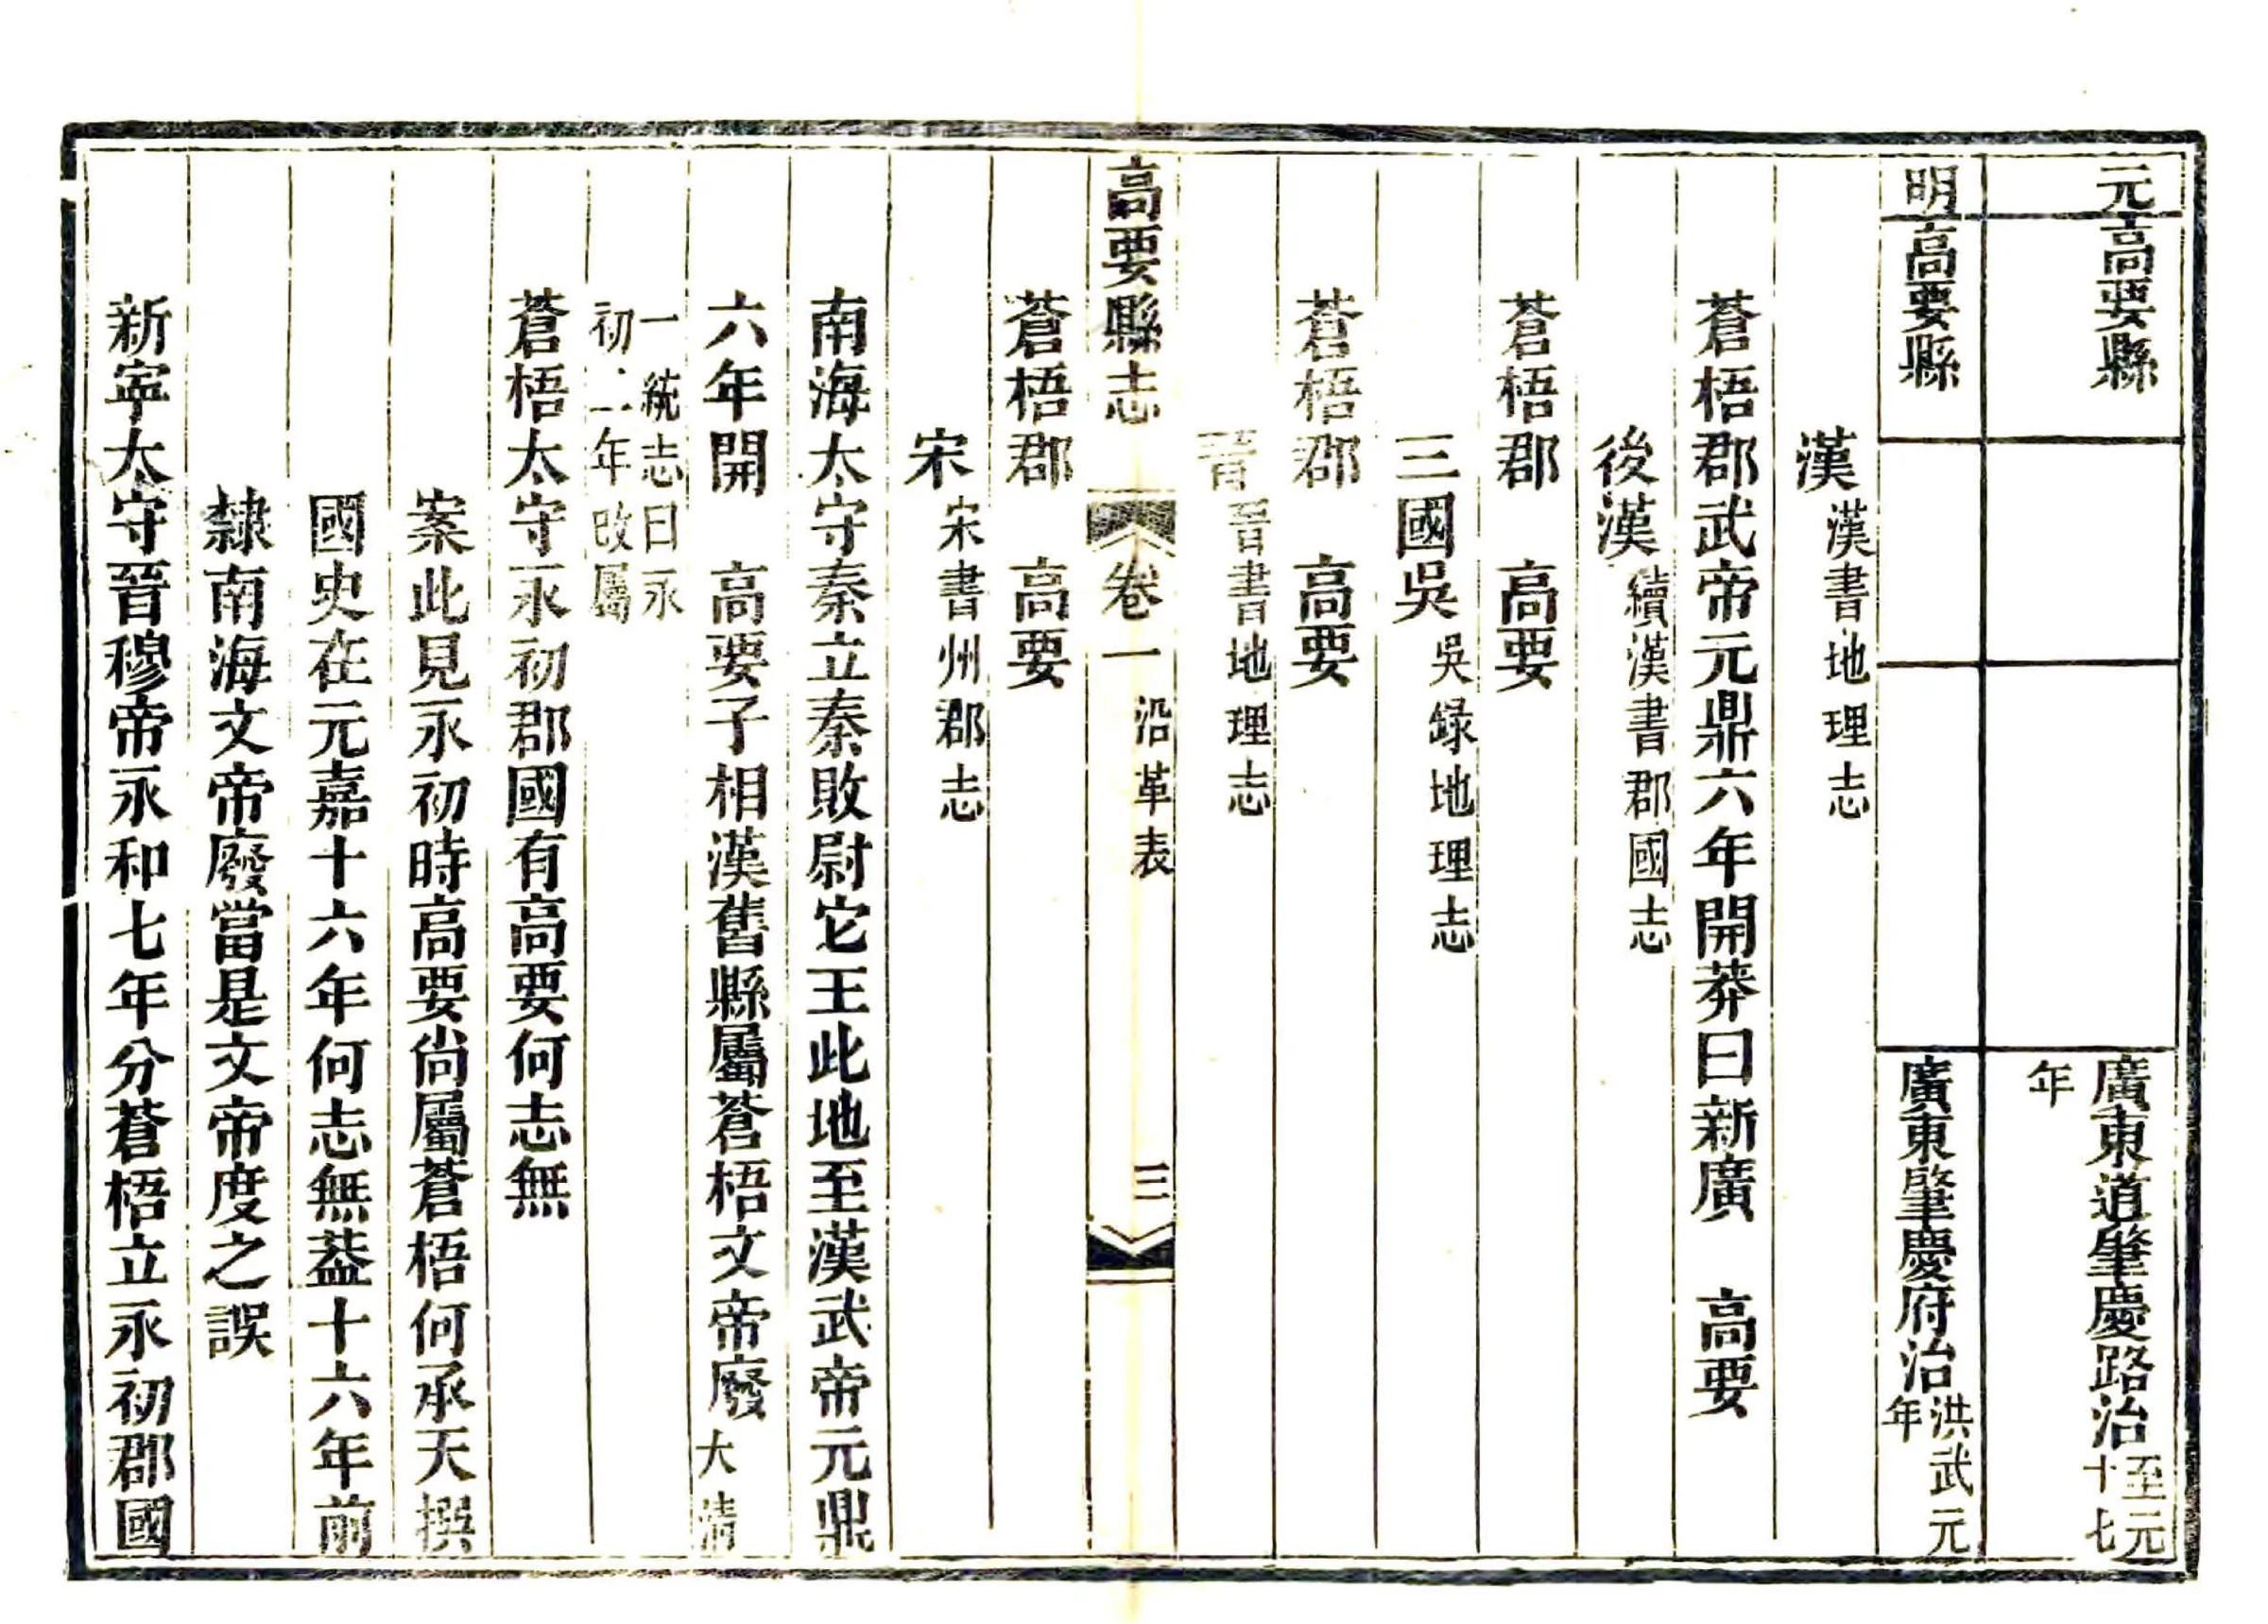 元 高要縣 廣東道肇慶路治 至元十七
年
明 高要縣 廣東肇慶府治 洪武元
年
漢 漢書地理志
蒼梧郡武帝元鼎六年開莽曰新廣 高要
後漢 續漢書郡國志
蒼梧郡 高要
三國吳 吳録地理志
蒼梧郡 高要
晉 晉書地理志
高要縣志 卷一 沿革表 三
蒼梧郡 高要
宋 宋書州郡志
南海太守秦立秦敗尉它王此地至漢武帝元鼎
六年開 高要子相漢舊縣屬蒼梧文帝廢 大清
一統志曰永
初二年改屬
蒼梧太守永初郡國有高要何志無
案此見永初時高要尚屬蒼梧何承天撰
國史在元嘉十六年何志無葢十六年前
隸南海文帝廢當是文帝度之誤
新寜太守晉穆帝永和七年分蒼梧立永初郡國